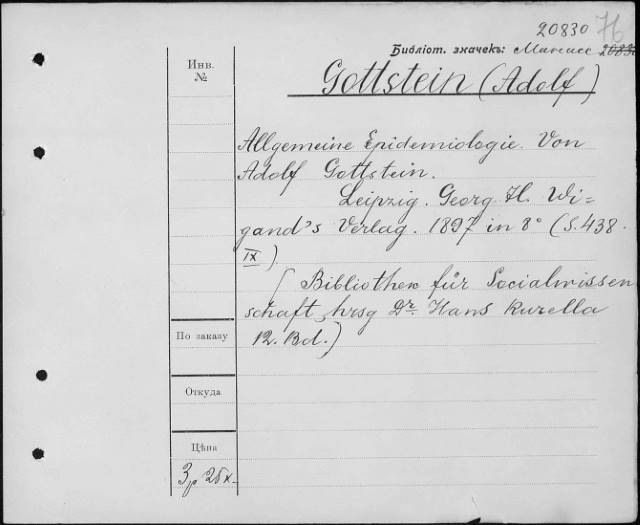 20830 76
Библіот. значекъ:
Инв.
№
Gottstein (Adolf)
Allgemeine Epidemiologie. Von
Adolf Gottstein.
Leipzig. Georg. H. Wi=
gand's Verlag. 1897 in 8° (S. 438.
IX).
( Bibliothek für Socialwissen
schaft, hrsg Dr. Hans Kurella
12. Bd.)
По заказу
Откуда
Цѣна
3р 25к.